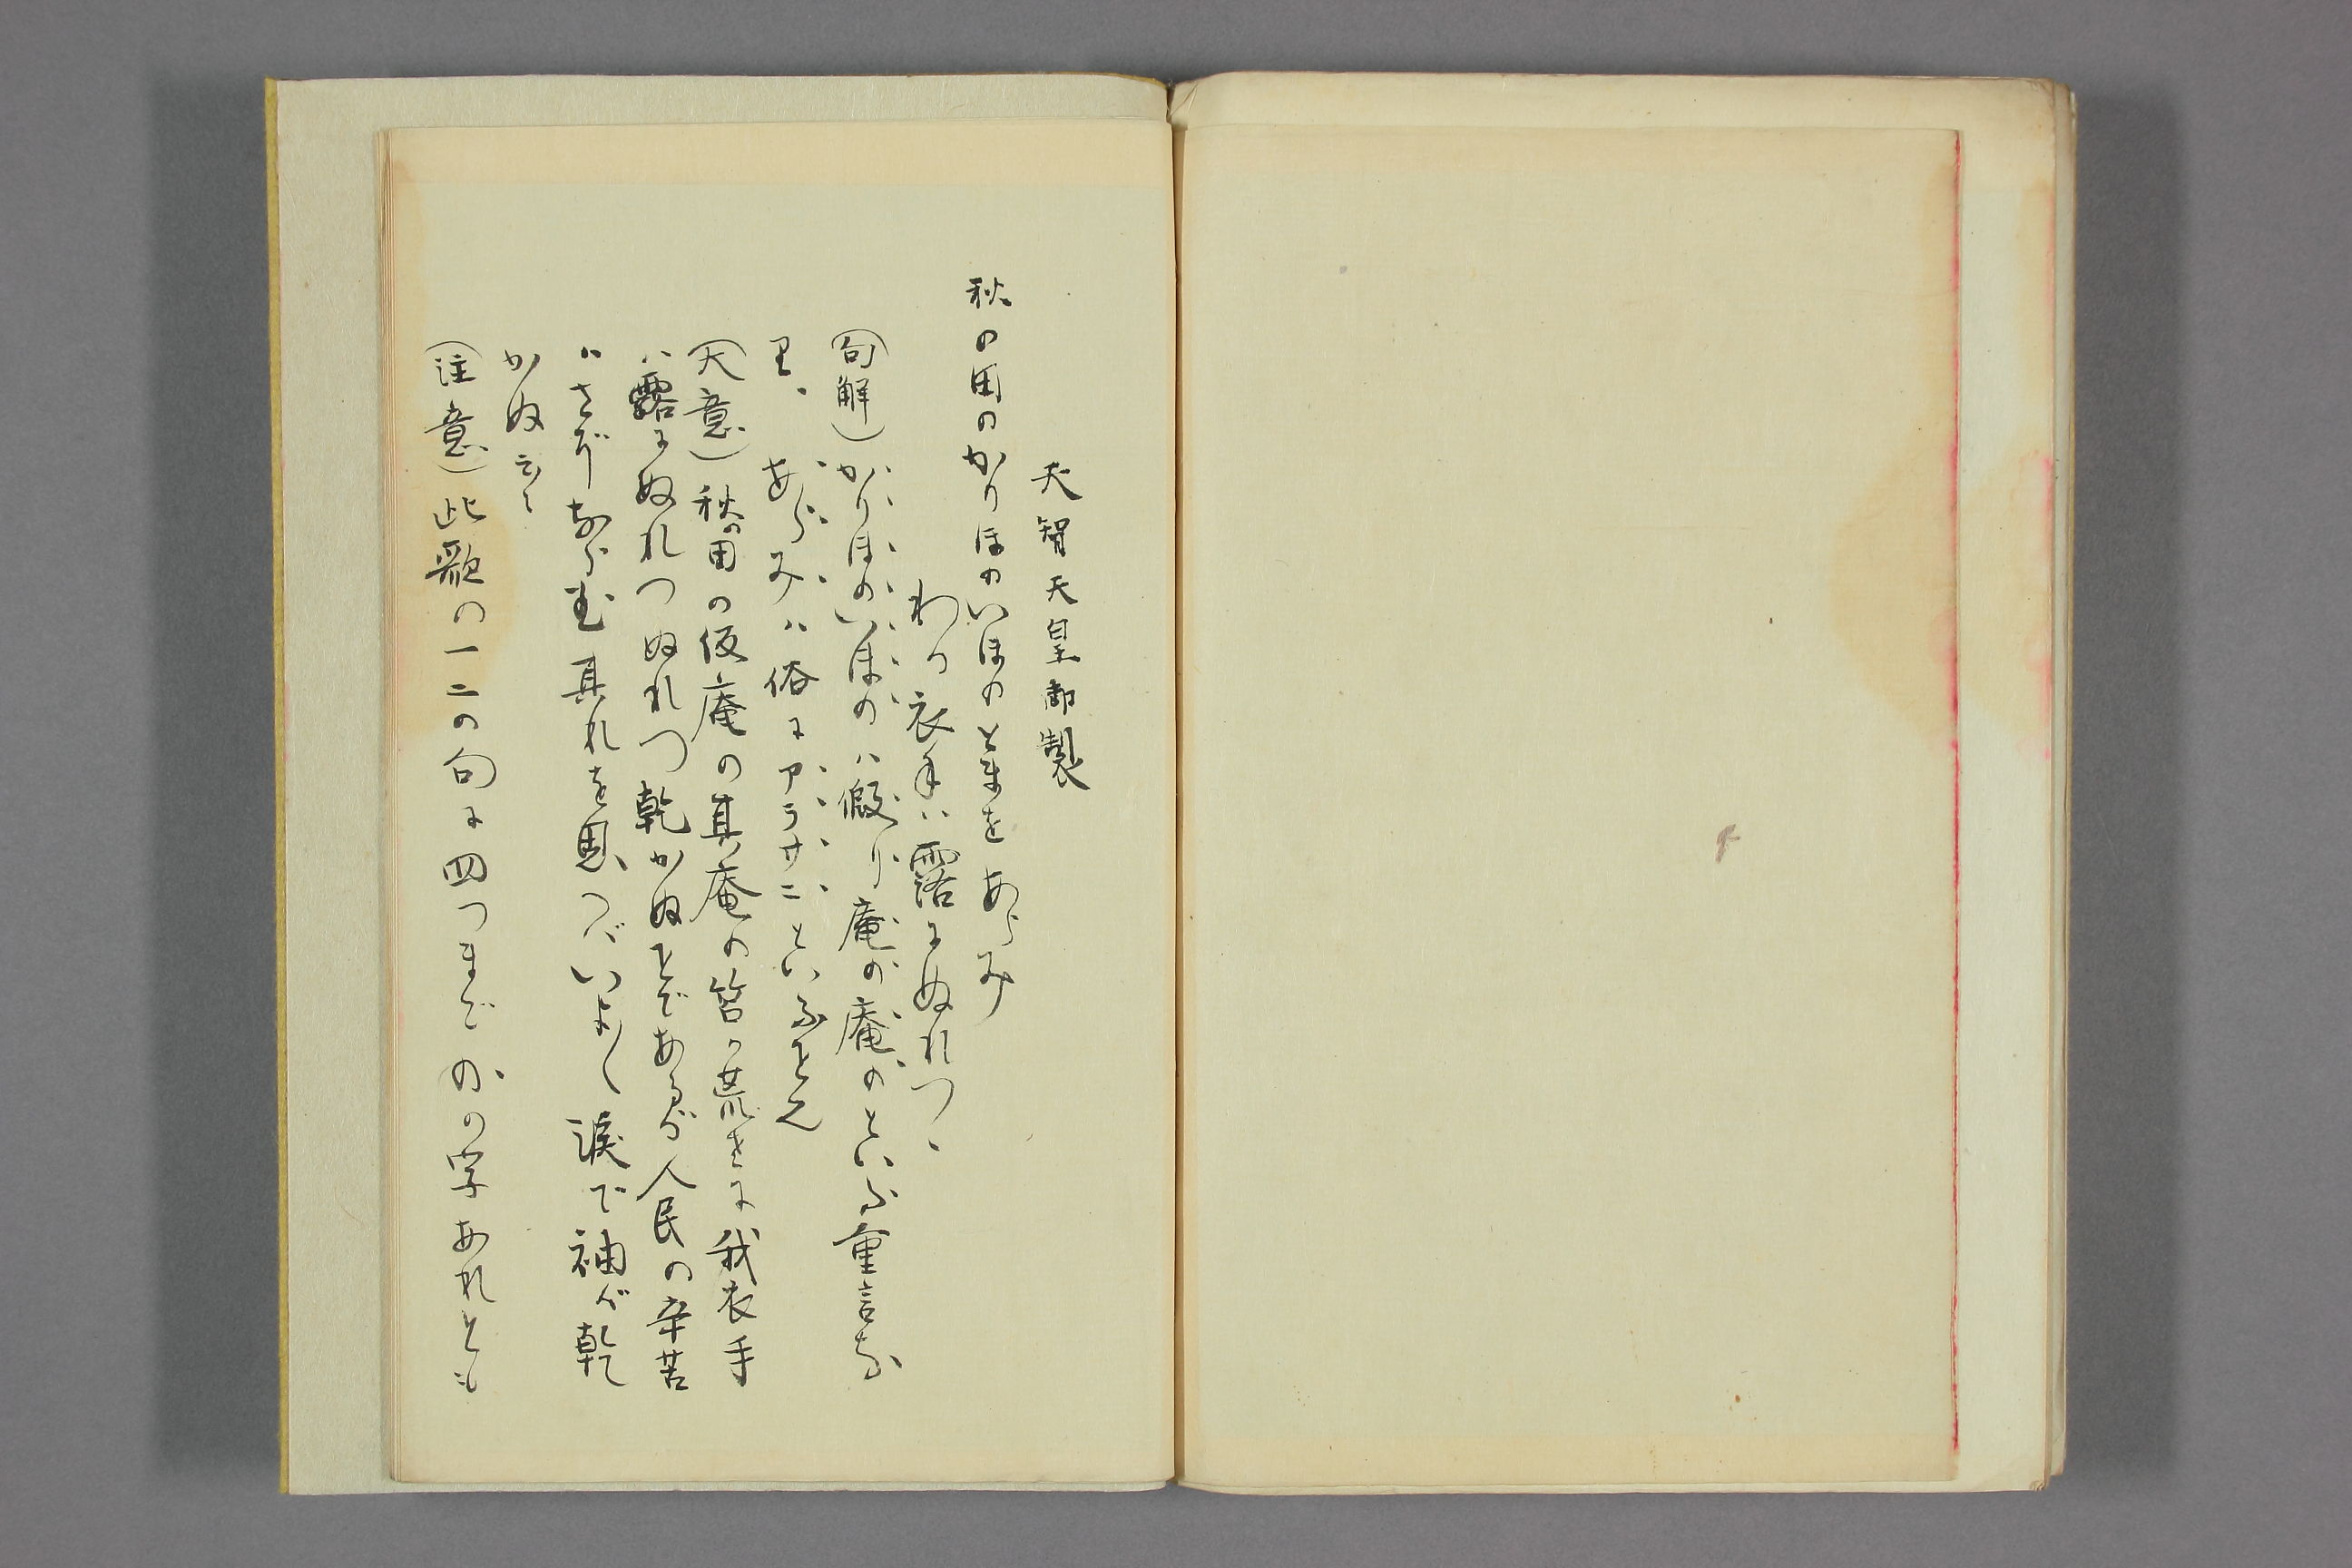 天智天皇御製
秋の田のかりほのいほのとまをあらみ
わか衣手ハ露にぬれつゝ
(句解)かりほのいほのハ假り庵の庵のといふ重言な
り、あらみハ俗にアラサニといふこと也
(大意)秋の田の仮庵の其庵の笘が荒さに我衣手
ハ露にぬれつぬれつ乾かぬことであるが人民の辛苦
ハさぞならむ其れを思へバいよ〱涙で袖が乾
かぬ云々
(注意)此歌の一二の句に四つまでのの字あれとも